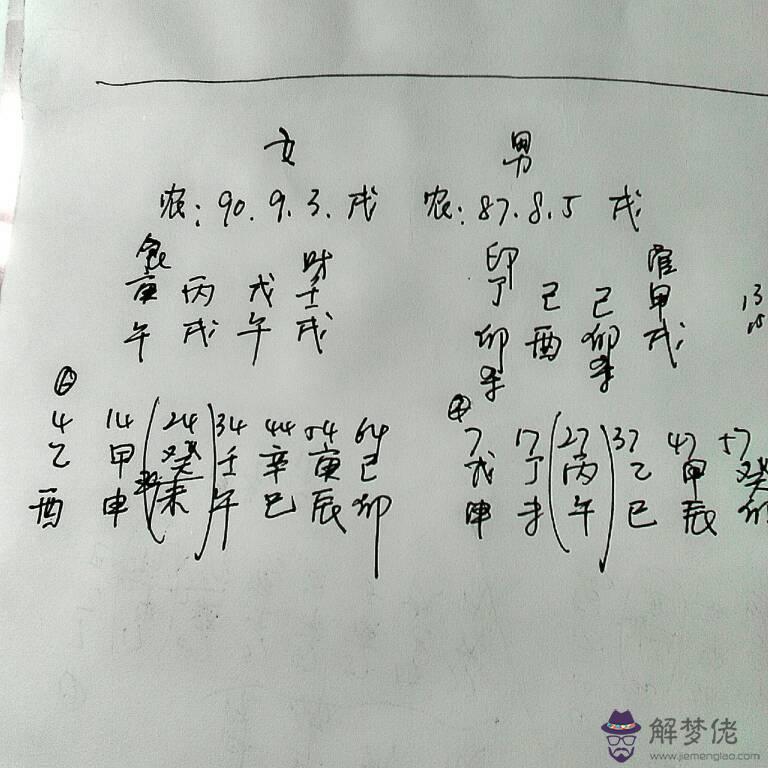 女 男
农: 90. 9. 3. 戌 农: 87. 8. 5 戌
食 财 印 官
庚 丙 戊 壬 丁 己 己 甲
午 戌 午 戌 卯 酉 卯 戌
4 14 24 34 44 54 64 7 17 27 37 47 57
乙 甲 癸 壬 辛 庚 己 戊 丁 丙 乙 甲 癸
酉 申 未 午 巳 辰 卯 申 未 午 巳 辰 卯
解梦佬
www.jiemenglao.com